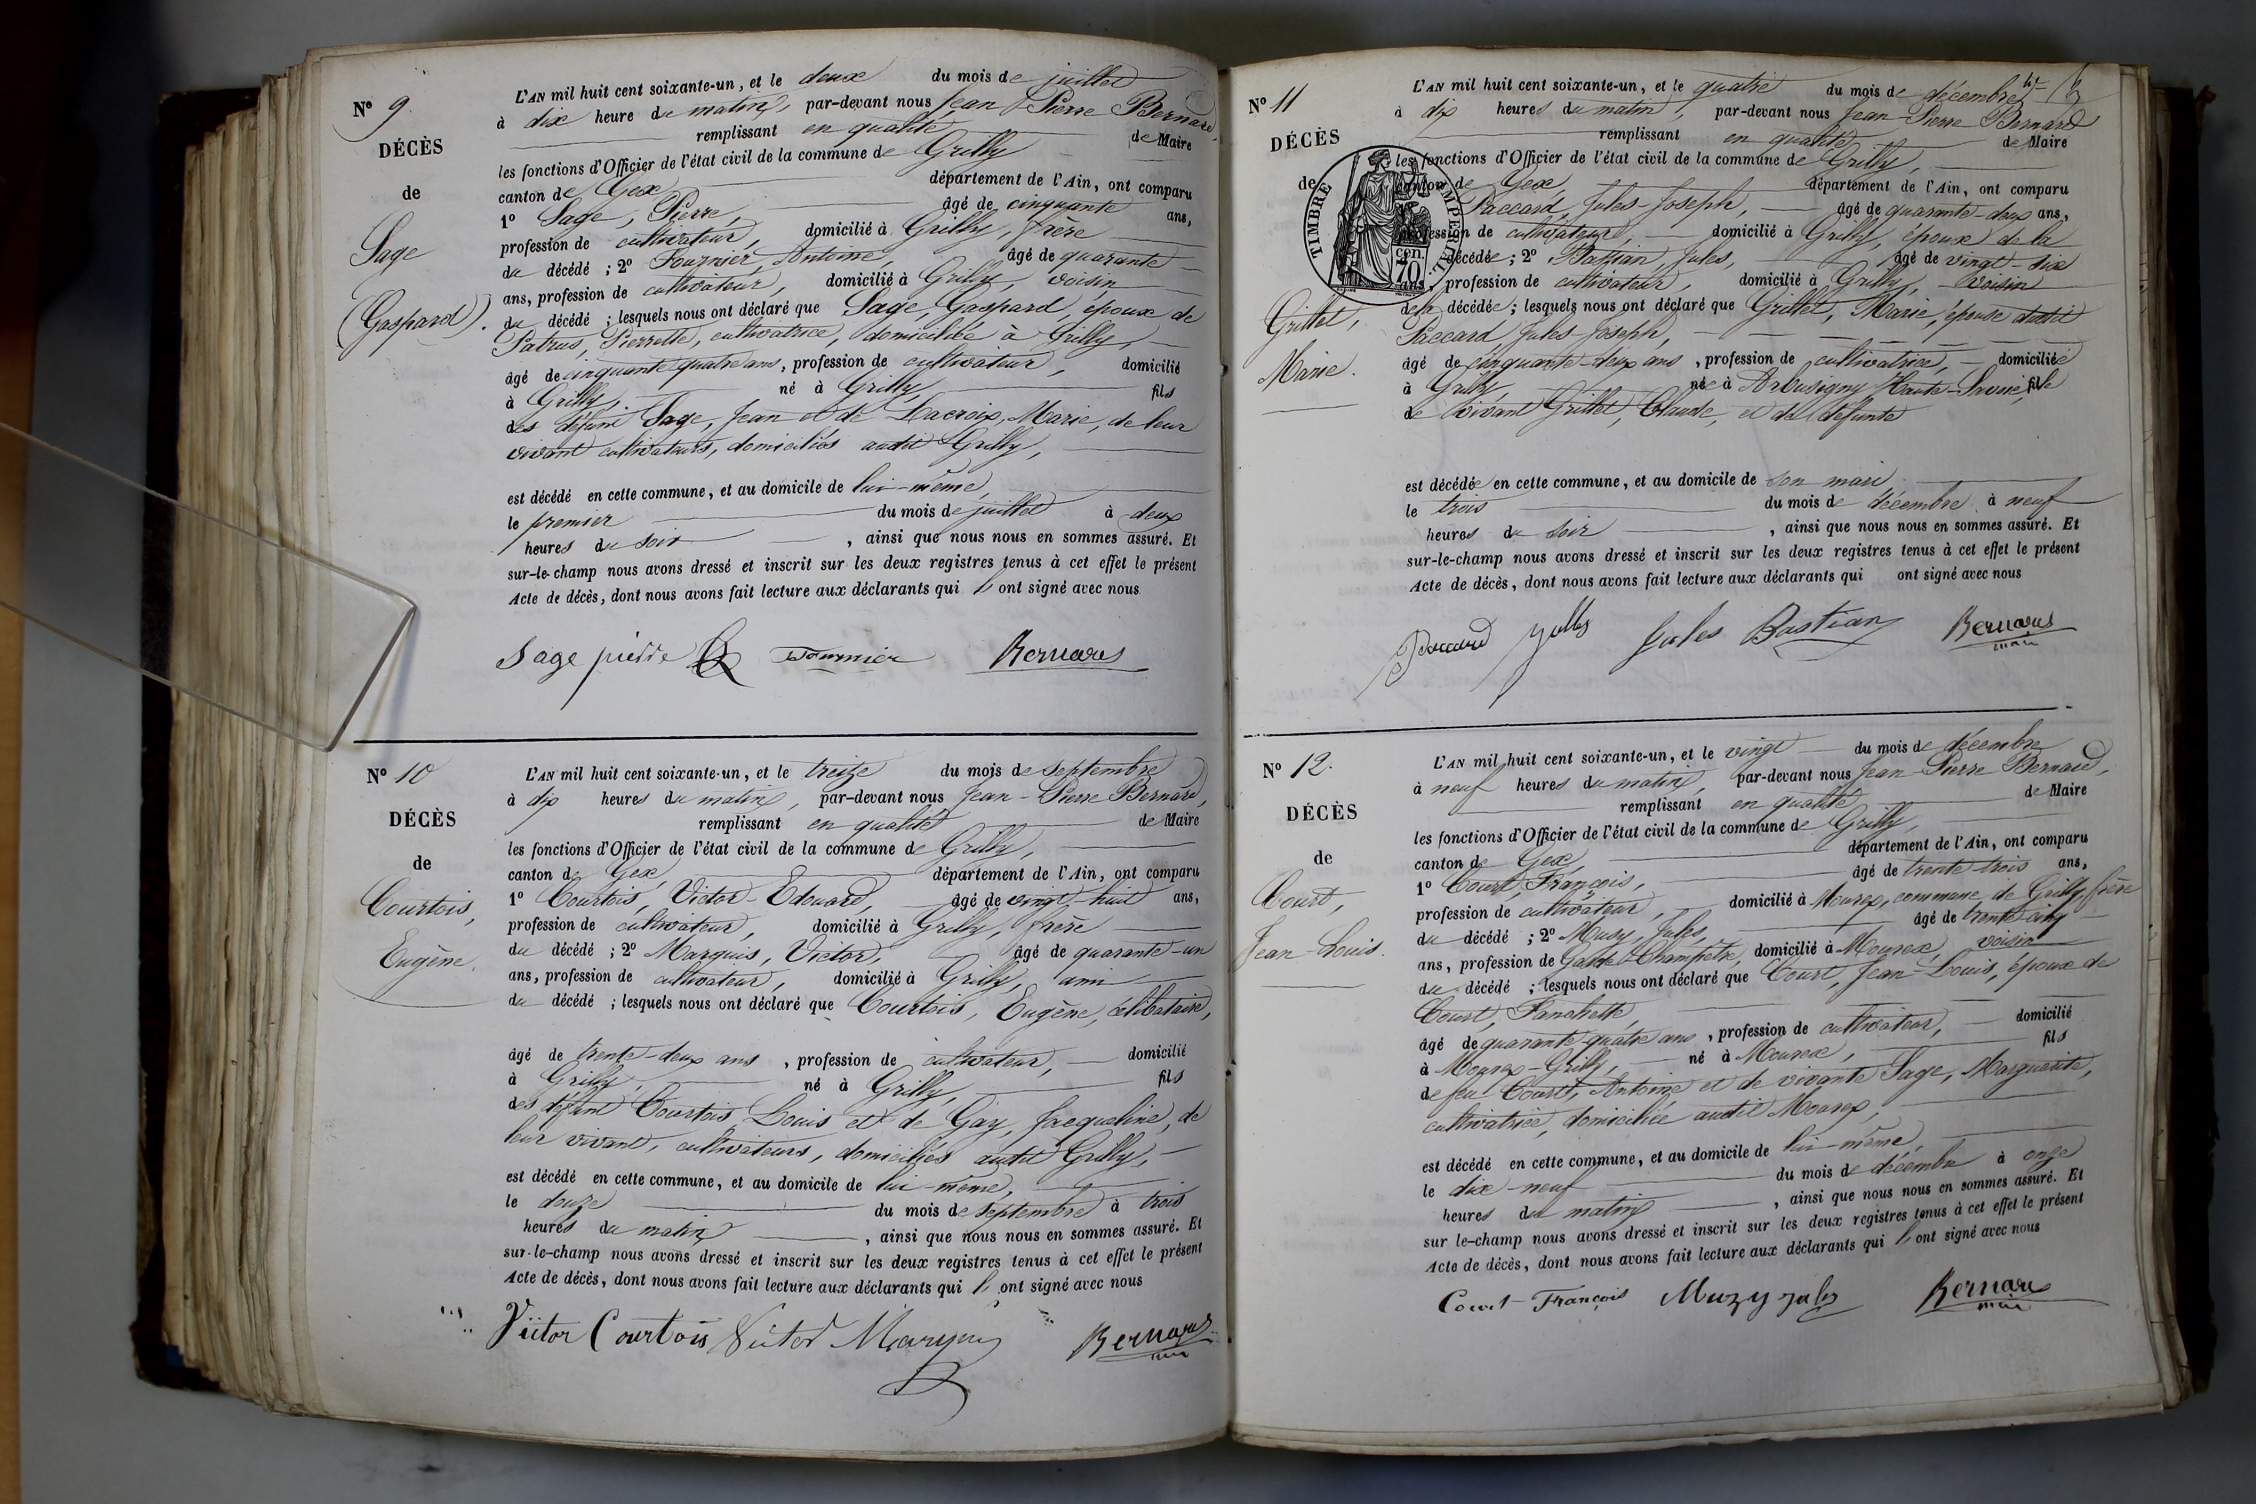 N° 9.
DÉCÈS
de
Sage
(Gaspard).
L'AN mil huit cent soixante-un, et le deux du mois de juillet
à dix heure du matin, par-devant nous Jean Pierre Bernard
remplissant en qualité de Maire
les fonctions d'Officier de l'état civil de la commune de Grilly
canton de Gex département de l'Ain, ont comparu
1° Sage, Pierre, âgé de cinquante ans,
profession de cultivateur, domicilié à Grilly, frère
du décédé ; 2° Fournier, Antoine, âgé de quarante
ans, profession de cultivateur, domicilié à Grilly, voisin
du décédé ; lesquels nous ont déclaré que Sage, Gaspard, époux de
Patrus, Pierrette, cultivatrice, domiciliée à Grilly,
âgé de cinquante quatre ans, profession de cultivateur, domicilié
à Grilly, né à Grilly, fils
des défunt Sage, Jean et de Lacroix, Marie, de leur
vivant cultivateurs, domiciliés audit Grilly,
est décédé en cette commune, et au domicile de lui-même,
le premier du mois de juillet à deux
heures du soir, ainsi que nous nous en sommes assuré. Et
sur-le-champ nous avons dressé et inscrit sur les deux registres tenus à cet effet le présent
Acte de décès, dont nous avons fait lecture aux déclarants qui l'ont signé avec nous
Sage pierre Fournier Bernard
N° 10
DÉCÈS
de
Courtois,
Eugène.
L'AN mil huit cent soixante-un, et le treize du mois de septembre
à dix heures du matin, par-devant nous Jean-Pierre Bernard,
remplissant en qualité de Maire
les fonctions d'Officier de l'état civil de la commune de Grilly,
canton de Gex, département de l'Ain, ont comparu
1° Courtois, Victor-Edouard, âgé de vingt-huit ans,
profession de cultivateur, domicilié à Grilly, frère
du décédé ; 2° Marquis, Victor, âgé de quarante-un
ans, profession de cultivateur, domicilié à Grilly, ami
du décédé ; lesquels nous ont déclaré que Courtois, Eugène, célibataire,
âgé de trente-deux ans, profession de cultivateur, domicilié
à Grilly, né à Grilly, fils
des défunt Courtois Louis et de Gay, Jacqueline, de
leur vivant, cultivateurs, domiciliés audit Grilly,
est décédé en cette commune, et au domicile de lui-même,
le douze du mois de septembre à trois
heures du matin, ainsi que nous nous en sommes assuré. Et
sur-le-champ nous avons dressé et inscrit sur les deux registres tenus à cet effet le présent
Acte de décès, dont nous avons fait lecture aux déclarants qui l'ont signé avec nous
Victor Courtois Victor Marquis Bernard
maire
N° 11
DÉCÈS
de
Grillet,
Marie.
TIMBRE IMPERIAL
70 cen.
L'AN mil huit cent soixante-un, et le quatre du mois de décembre
à dix heures du matin, par-devant nous Jean-Pierre Bernard
remplissant en qualité de Maire
les fonctions d'Officier de l'état civil de la commune de Grilly,
canton de Gex, département de l'Ain, ont comparu
Paccard, Jules-Joseph, âgé de quarante-deux ans,
profession de cultivateur, domicilié à Grilly, époux de la
décédée ; 2° Bastian, Jules, âgé de vingt-six
ans, profession de cultivateur, domicilié à Grilly, voisin
de la décédée ; lesquels nous ont déclaré que Grillet, Marie, épouse dudit
Paccard, Jules Joseph,
âgé de cinquante-deux ans, profession de cultivatrice, domiciliée
à Grilly, née à Arbusigny Haute-Savoie, fille
de vivant Grillet, Claude, et de défunte
est décédée en cette commune, et au domicile de son mari,
le trois du mois de décembre à neuf
heures du soir, ainsi que nous nous en sommes assuré. Et
sur-le-champ nous avons dressé et inscrit sur les deux registres tenus à cet effet le présent
Acte de décès, dont nous avons fait lecture aux déclarants qui ont signé avec nous
Paccard Jules Bastian Bernard
maire
N° 12.
DÉCÈS
de
Court,
Jean-Louis.
L'AN mil huit cent soixante-un, et le vingt du mois de décembre
à neuf heures du matin, par-devant nous Jean-Pierre Bernard,
remplissant en qualité de Maire
les fonctions d'Officier de l'état civil de la commune de Grilly,
canton de Gex, département de l'Ain, ont comparu
1° Court, François, âgé de trente trois ans,
profession de cultivateur, domicilié à Mourex, commune de Grilly, frère
du décédé ; 2° Musy, Jules, âgé de trente-cinq
ans, profession de Garde-Champêtre, domicilié à Mourex, voisin
du décédé ; lesquels nous ont déclaré que Court, Jean-Louis, époux de
Court, Fanchette,
âgé de quarante-quatre ans, profession de cultivateur, domicilié
à Mourex-Grilly, né à Mourex, fils
de feu Court, Antoine et de vivante Sage, Marguerite,
cultivatrice, domiciliée audit Mourex,
est décédé en cette commune, et au domicile de lui-même,
le dix-neuf du mois de décembre à onze
heures du matin, ainsi que nous nous en sommes assuré. Et
sur le-champ nous avons dressé et inscrit sur les deux registres tenus à cet effet le présent
Acte de décès, dont nous avons fait lecture aux déclarants qui l'ont signé avec nous
Court François Muzy Jules Bernard
maire